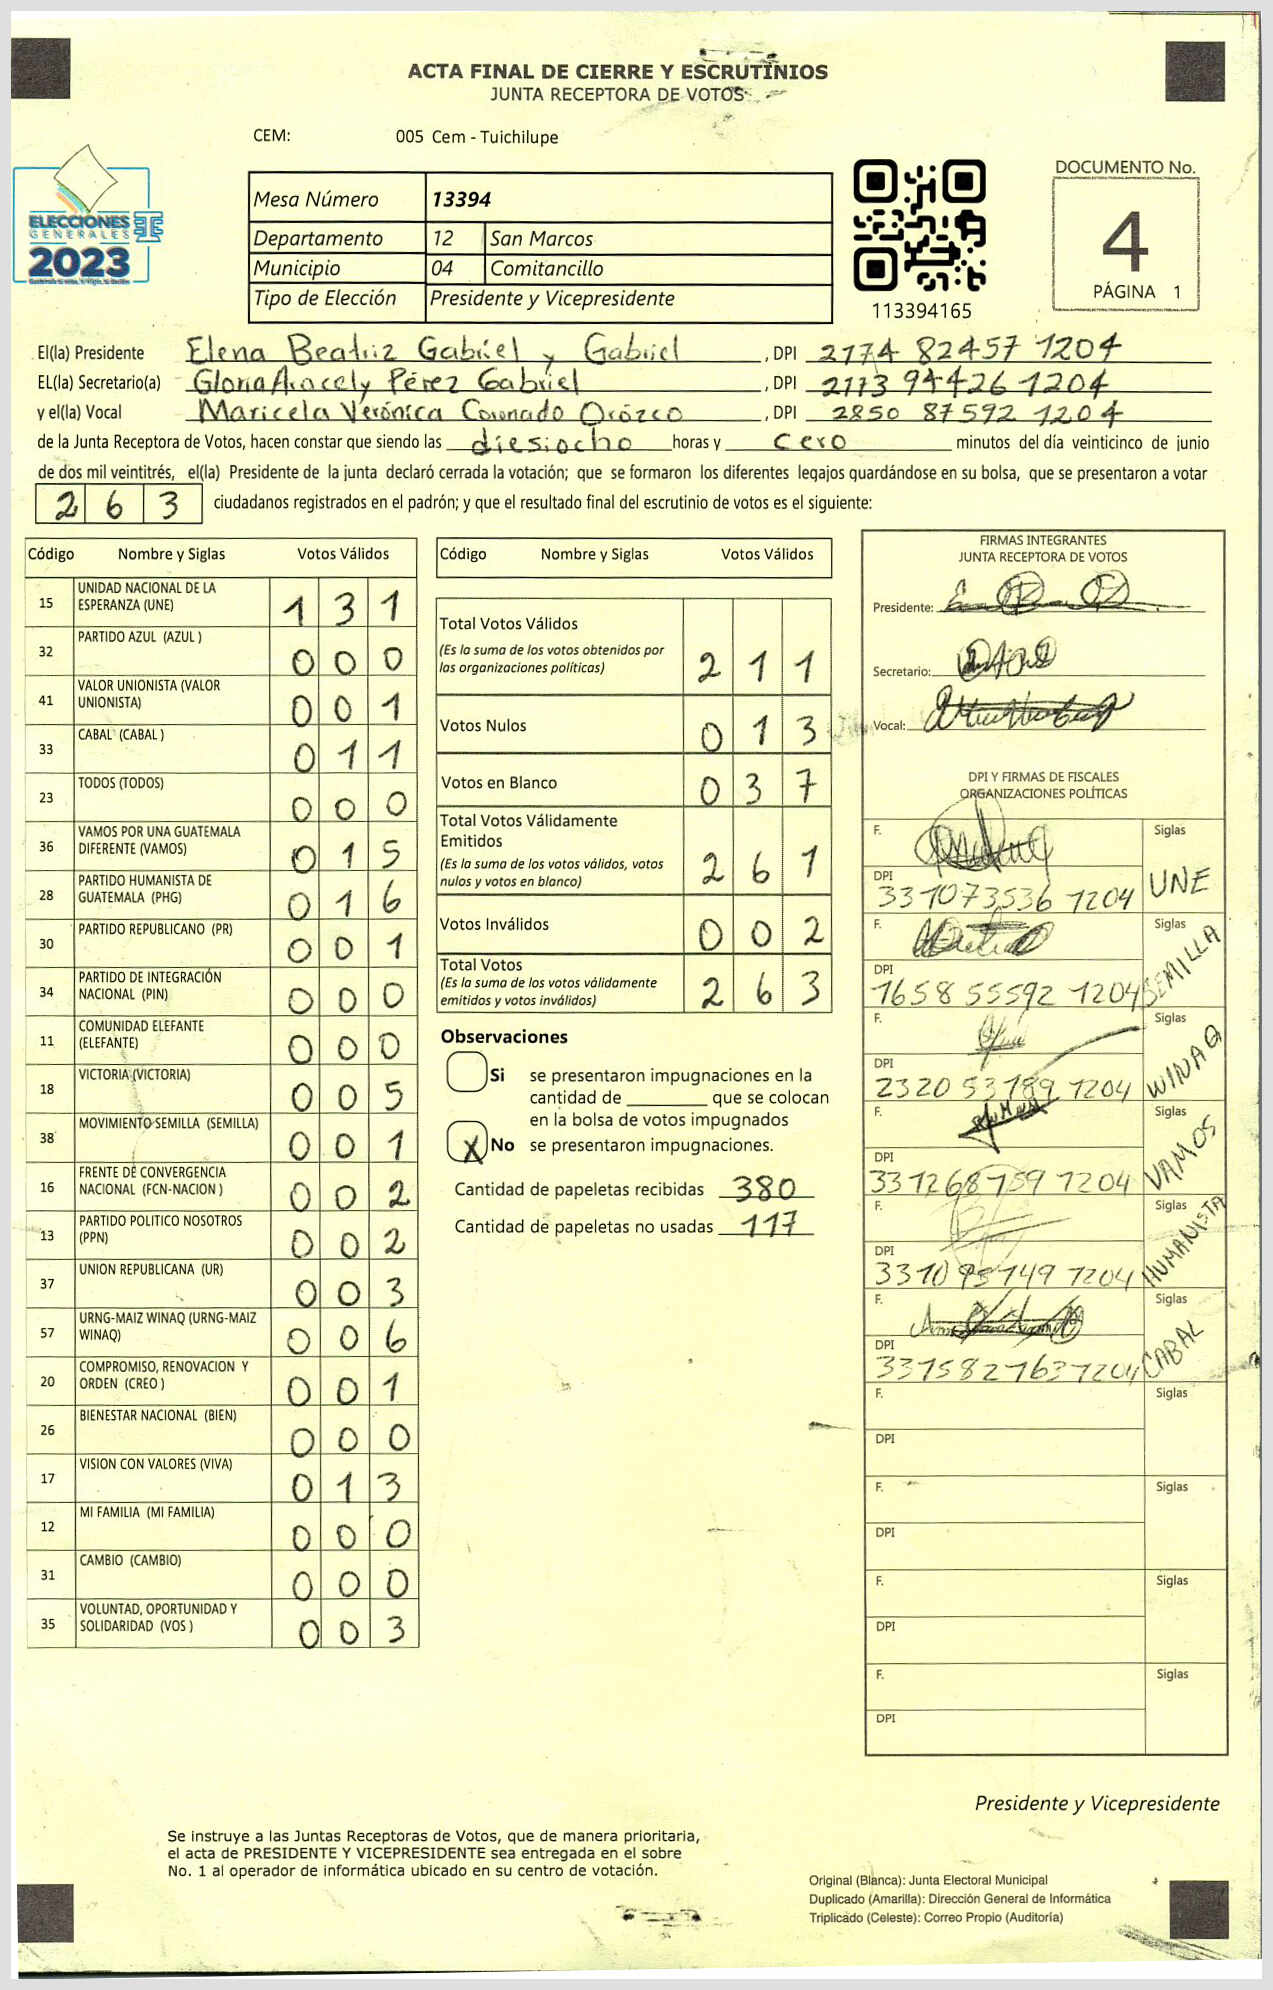 ACTA FINAL DE CIERRE Y ESCRUTINIOS
JUNTA RECEPTORA DE VOTOS
CEM: 005 Cem - Tuichilupe
ELECCIONES
GENERALES
2023
Mesa Número 13394
Departamento 12 San Marcos
Municipio 04 Comitancillo
Tipo de Elección Presidente y Vicepresidente
113394165
DOCUMENTO No.
4
PÁGINA 1
El(la) Presidente Elena Beatriz Gabriel y Gabriel, DPI 2174 82457 1204
EL(la) Secretario(a) Gloria Aracely Pérez Gabriel, DPI 2173 94426 1204
y el(la) Vocal Maricela Verónica Coronado Orózco, DPI 2850 87592 1204
de la Junta Receptora de Votos, hacen constar que siendo las diesiocho horas y cero minutos del día veinticinco de junio
de dos mil veintitrés, el(la) Presidente de la junta declaró cerrada la votación; que se formaron los diferentes legajos quardándose en su bolsa, que se presentaron a votar
263 ciudadanos registrados en el padrón; y que el resultado final del escrutinio de votos es el siguiente:
Código Nombre y Siglas Votos Válidos
15 UNIDAD NACIONAL DE LA ESPERANZA (UNE) 131
32 PARTIDO AZUL (AZUL ) 000
41 VALOR UNIONISTA (VALOR UNIONISTA) 001
33 CABAL (CABAL ) 011
23 TODOS (TODOS) 000
36 VAMOS POR UNA GUATEMALA DIFERENTE (VAMOS) 015
28 PARTIDO HUMANISTA DE GUATEMALA (PHG) 016
30 PARTIDO REPUBLICANO (PR) 001
34 PARTIDO DE INTEGRACIÓN NACIONAL (PIN) 000
11 COMUNIDAD ELEFANTE (ELEFANTE) 000
18 VICTORIA (VICTORIA) 005
38 MOVIMIENTO SEMILLA (SEMILLA) 001
16 FRENTE DE CONVERGENCIA NACIONAL (FCN-NACION ) 002
13 PARTIDO POLITICO NOSOTROS (PPN) 002
37 UNION REPUBLICANA (UR) 003
57 URNG-MAIZ WINAQ (URNG-MAIZ WINAQ) 006
20 COMPROMISO, RENOVACION Y ORDEN (CREO ) 001
26 BIENESTAR NACIONAL (BIEN) 000
17 VISION CON VALORES (VIVA) 013
12 MI FAMILIA (MI FAMILIA) 000
31 CAMBIO (CAMBIO) 000
35 VOLUNTAD, OPORTUNIDAD Y SOLIDARIDAD (VOS ) 003
Código Nombre y Siglas Votos Válidos
Total Votos Válidos
(Es la suma de los votos obtenidos por
las organizaciones políticas) 211
Votos Nulos 013
Votos en Blanco 037
Total Votos Válidamente
Emitidos
(Es la suma de los votos válidos, votos
nulos y votos en blanco) 261
Votos Inválidos 002
Total Votos
(Es la suma de los votos válidamente
emitidos y votos inválidos) 263
Observaciones
Si se presentaron impugnaciones en la
cantidad de ________ que se colocan
en la bolsa de votos impugnados
X No se presentaron impugnaciones.
Cantidad de papeletas recibidas 380
Cantidad de papeletas no usadas 117
FIRMAS INTEGRANTES
JUNTA RECEPTORA DE VOTOS
Presidente:
Secretario:
Vocal:
DPI Y FIRMAS DE FISCALES
ORGANIZACIONES POLÍTICAS
F. Siglas
DPI 331073536 1204 UNE
F. Siglas
DPI 1658 55592 1204 SEMILLA
F. Siglas
DPI 2320 53189 1204 WINAQ
F. Siglas
DPI 331268759 1204 VAMOS
F. Siglas
DPI 1204 HUMANISTA
F. Siglas
DPI 3315827631204 CABAL
F. Siglas
DPI
F. Siglas
DPI
F. Siglas
DPI
F. Siglas
DPI
Presidente y Vicepresidente
Se instruye a las Juntas Receptoras de Votos, que de manera prioritaria,
el acta de PRESIDENTE Y VICEPRESIDENTE sea entregada en el sobre
No. 1 al operador de informática ubicado en su centro de votación.
Original (Blanca): Junta Electoral Municipal
Duplicado (Amarilla): Dirección General de Informática
Triplicado (Celeste): Correo Propio (Auditoría)